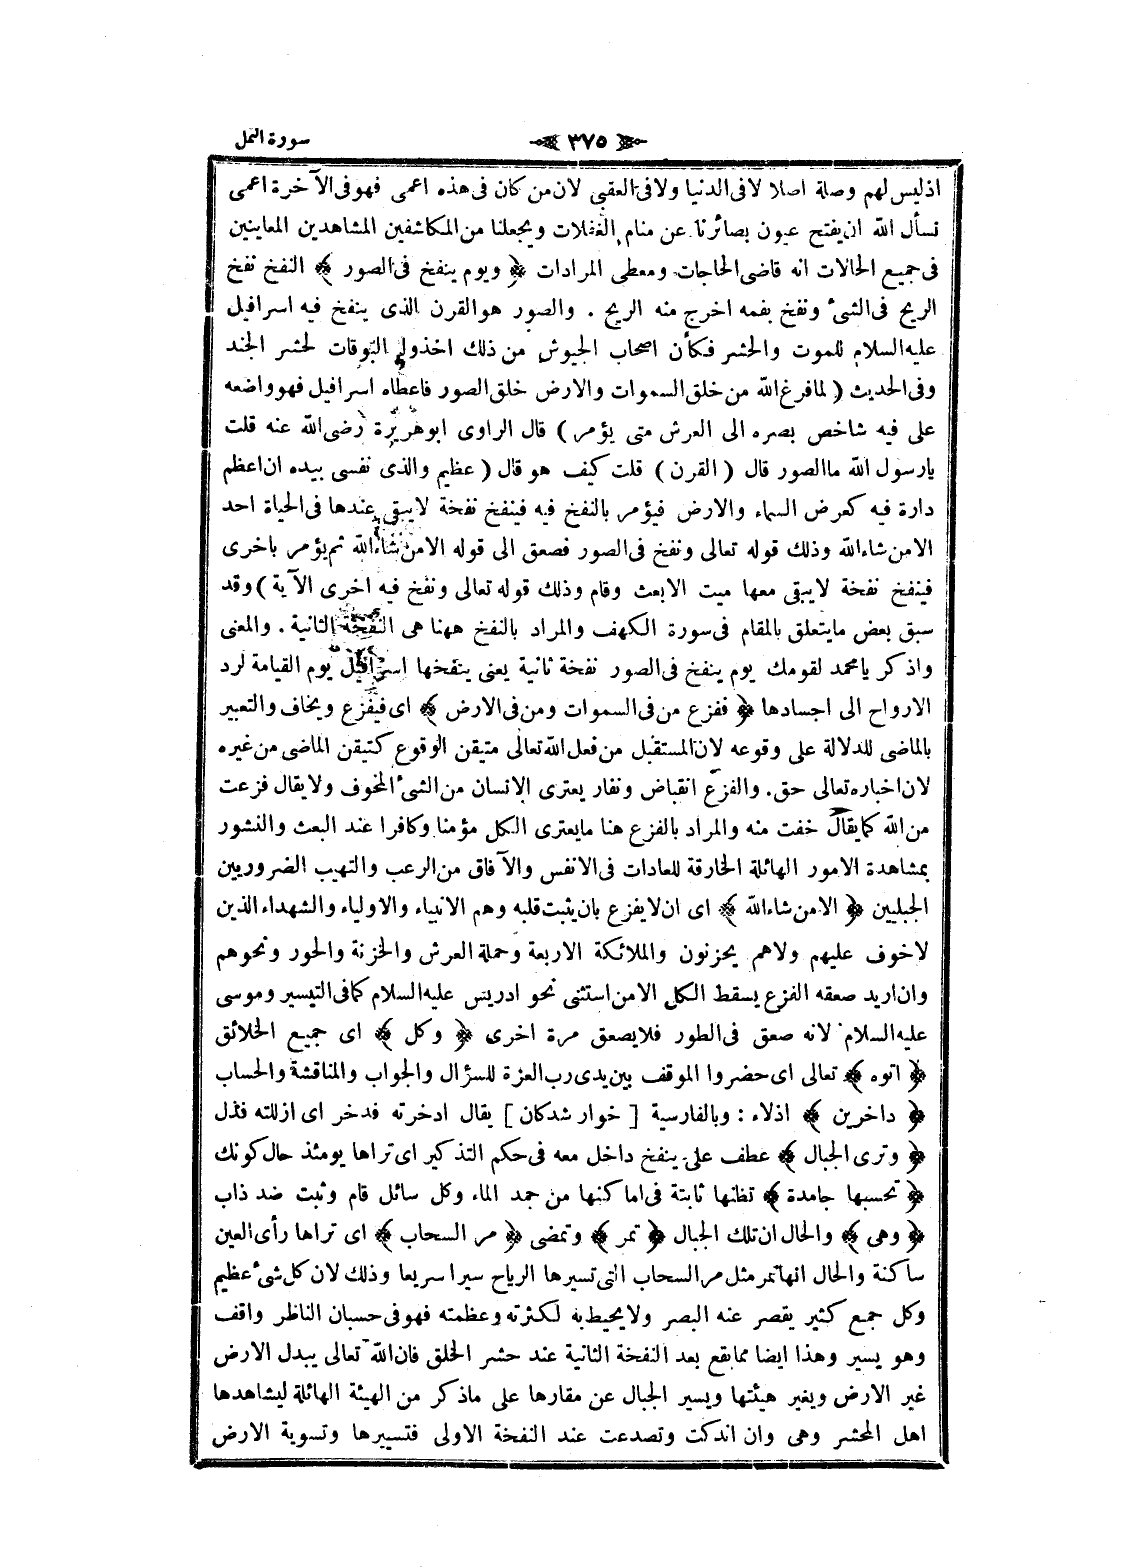 سورة النمل
٣٧٥
اذليس لهم وصلة اصلا لافى الدنيا ولافى العقبى لان من كان فى هذه اعمى فهو فى الآخرة اعمى
نسأل الله ان يفتح عيون بصائرنا عن منام الغفلات ويجعلنا من المكاشفين المشاهدين المعاينين
فى جميع الحالات انه قاضى الحاجات ومعطى المرادات ﴿ ويوم ينفخ فى الصور ﴾ النفخ نفخ
الريح فى الشئ ونفخ بفمه اخرج منه الريح . والصور هو القرن الذى ينفخ فيه اسرافيل
عليه السلام للموت والحشر فكأن اصحاب الجيوش من ذلك اخذوا البوقات لحشر الجند
وفى الحديث ( لما فرغ الله من خلق السموات والارض خلق الصور فاعطاه اسرافيل فهو واضعه
على فيه شاخص بصره الى العرش متى يؤمر ) قال الراوى ابوهريرة رضى الله عنه قلت
يارسول الله ماالصور قال ( القرن ) قلت كيف هو قال ( عظيم والذى نفسى بيده ان اعظم
دارة فيه كعرض السماء والارض فيؤمر بالنفخ فيه فينفخ نفخة لايبقى عندها فى الحياة احد
الا من شاءالله وذلك قوله تعالى ونفخ فى الصور فصعق الى قوله الا من شاءالله ثم يؤمر باخرى
فينفخ نفخة لايبقى معها ميت الابعث وقام وذلك قوله تعالى ونفخ فيه اخرى الآية ) وقد
سبق بعض مايتعلق بالمقام فى سورة الكهف والمراد بالنفخ ههنا هى النفخة الثانية . والمعنى
واذكر يامحمد لقومك يوم ينفخ فى الصور نفخة ثانية يعنى ينفخها اسرافيل يوم القيامة لرد
الارواح الى اجسادها ﴿ ففزع من فى السموات ومن فى الارض ﴾ اى فيفزع ويخاف والتعبير
بالماضى للدلالة على وقوعه لان المستقبل من فعل الله تعالى متيقن الوقوع كتيقن الماضى من غيره
لان اخباره تعالى حق. والفزع انقباض ونفار يعترى الانسان من الشئ المخوف ولايقال فزعت
من الله كما يقال خفت منه والمراد بالفزع هنا مايعترى الكل مؤمنا وكافرا عند البعث والنشور
بمشاهدة الامور الهائلة الخارقة للعادات فى الانفس والآفاق من الرعب والتهيب الضروريين
الجبليين ﴿ الا من شاءالله ﴾ اى ان لايفزع بان يثبت قلبه وهم الانبياء والاولياء والشهداء الذين
لاخوف عليهم ولاهم يحزنون والملائكة الاربعة وحملة العرش والخزنة والحور ونحوهم
وان اريد صعقة الفزع يسقط الكل الا من استثنى نحو ادريس عليه السلام كما فى التيسير وموسى
عليه السلام لانه صعق فى الطور فلايصعق مرة اخرى ﴿ وكل ﴾ اى جميع الخلائق
﴿ اتوه ﴾ تعالى اى حضروا الموقف بين يدى رب العزة للسؤال والجواب والمناقشة والحساب
﴿ داخرين ﴾ اذلاء : وبالفارسية [ خوار شدكان ] يقال ادخرته فدخر اى اذللته فذل
﴿ وترى الجبال ﴾ عطف على ينفخ داخل معه فى حكم التذكير اى تراها يومئذ حال كونك
﴿ تحسبها جامدة ﴾ تظنها ثابتة فى اماكنها من جمد الماء وكل سائل قام وثبت ضد ذاب
﴿ وهى ﴾ والحال ان تلك الجبال ﴿ تمر ﴾ وتمضى ﴿ مر السحاب ﴾ اى تراها رأى العين
ساكنة والحال انها تمر مثل مر السحاب التى تسيرها الرياح سيرا سريعا وذلك لان كل شئ عظيم
وكل جمع كثير يقصر عنه البصر ولايحيط به لكثرته وعظمته فهو فى حسبان الناظر واقف
وهو يسير وهذا ايضا مما يقع بعد النفخة الثانية عند حشر الخلق فان الله تعالى يبدل الارض
غير الارض ويغير هيئتها ويسير الجبال عن مقارها على ماذكر من الهيئة الهائلة ليشاهدها
اهل المحشر وهى وان اندكت وتصدعت عند النفخة الاولى فتسييرها وتسوية الارض